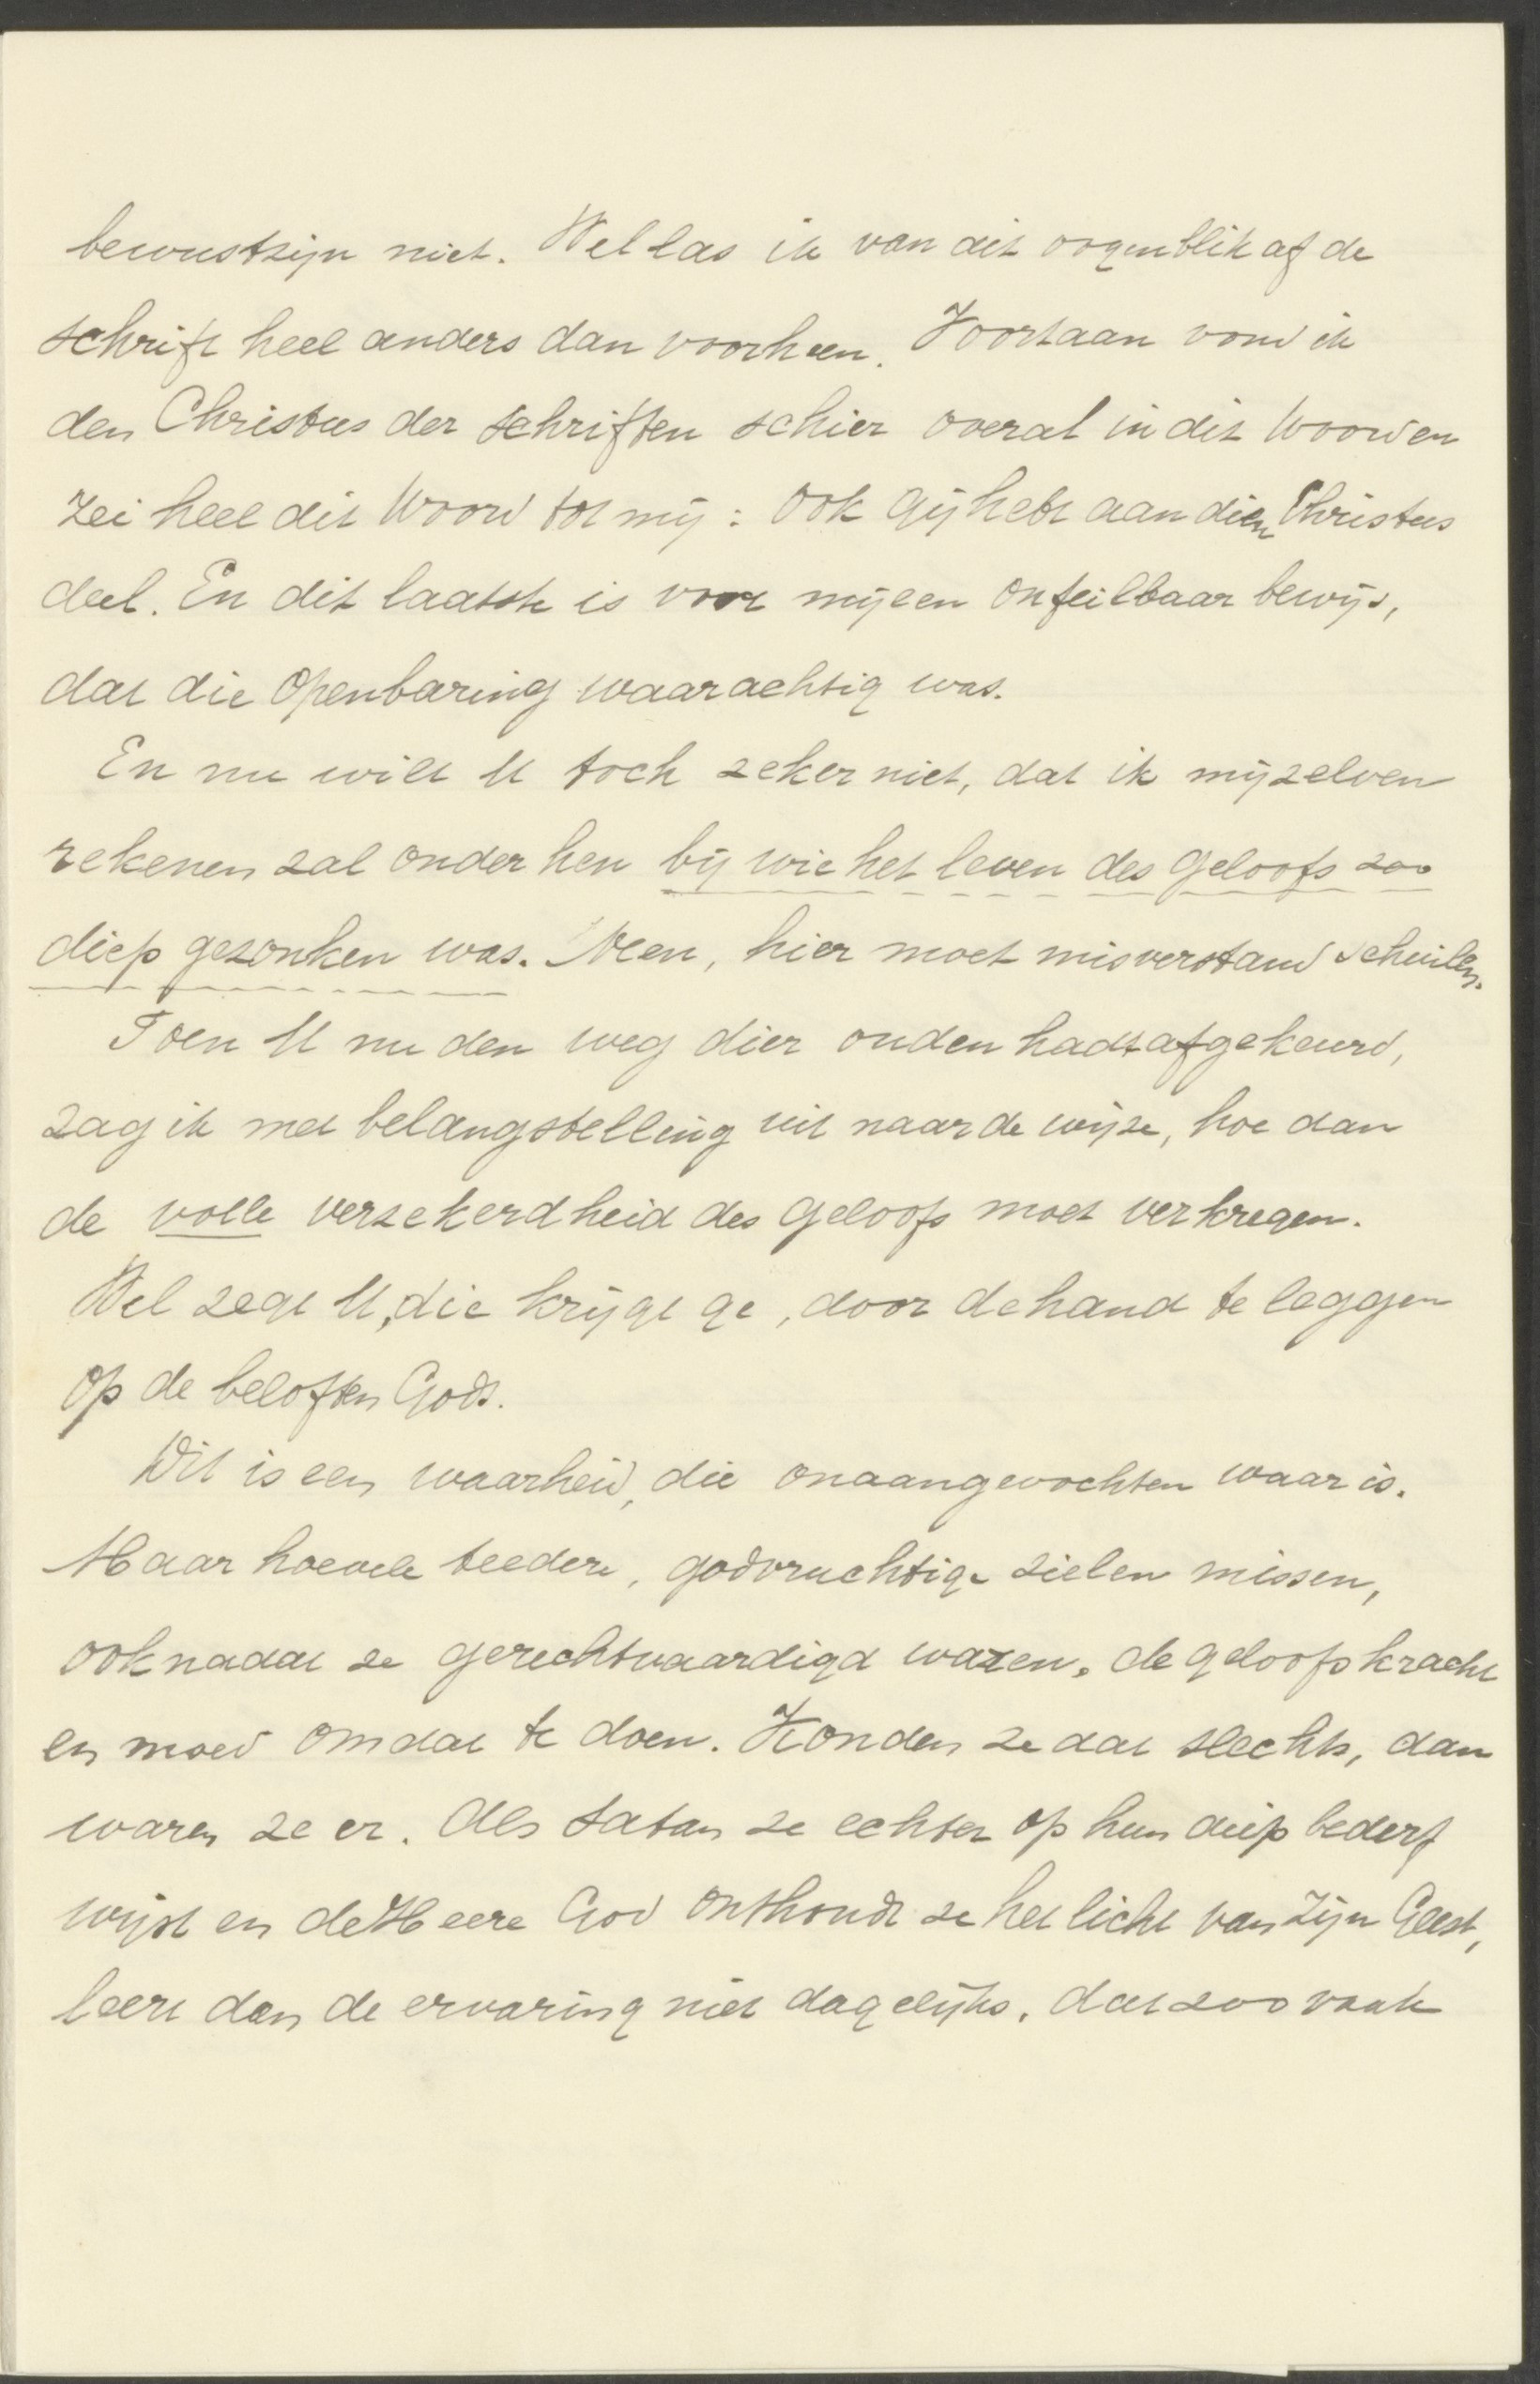 bewustzijn niet. Wel las ik van dit oogenblik af de
Schrift heel anders dan voorheen. Voortaan vond ik
den Christus der Schriften schier overal in dit Woord en
zei heel dit Woord tot mij: Ook gij hebt aan dien Christus
deel. En dit laatste is voor mij een onfeilbaar bewijs,
dat die Openbaring waarachtig was.
En nu wilt U toch zeker niet, dat ik mijzelven
rekenen zal onder hen bij wie het leven des geloofs zoo
diep gezonken was. Neen, hier moet misverstand schuilen.
Toen U nu den weg dier ouden hadt afgekeurd,
zag ik met belangstelling uit naar de wijze, hoe dan
de volle verzekerdheid des geloofs moet verkregen.
Wel zegt U, die krijgt ge, door de hand te leggen
op de beloften Gods.
Dit is een waarheid, die onaangevochten waar is.
Maar hoevele teedere, godvruchtige zielen missen,
ook nadat ze gerechtvaardigd waren, de geloofskracht
en moed om dat te doen. Konden ze dat slechts, dan
waren ze er. Als Satan ze echter op hun diep bederf
wijst en de Heere God onthoudt ze het licht van Zijn Geest,
leert dan de ervaring niet dagelijks, dat zoo vaak